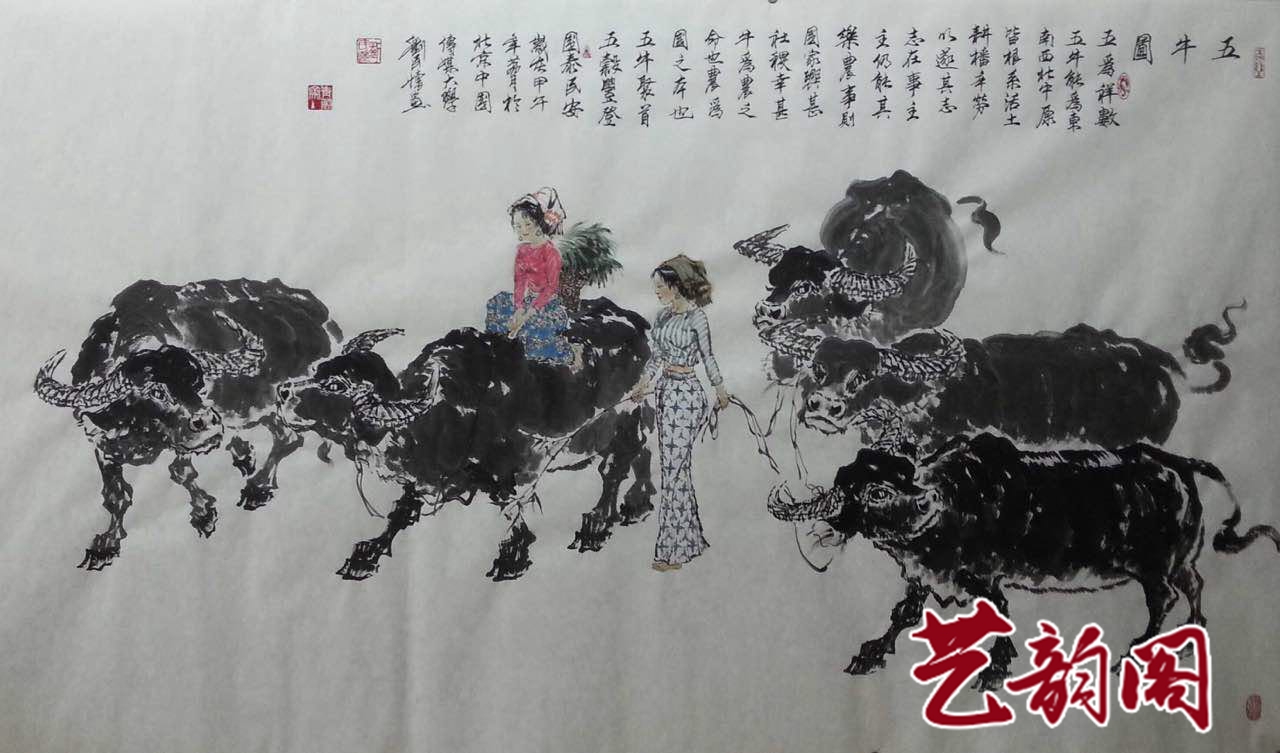 五牛圖
五為祥數
五牛能為東
南西北中原
皆根系土
耕播辛勞
以遂其志
志在事主
主仍能其
樂農事則
國家興甚
社稷幸甚
牛為農之
命也農為
國之本也
五牛聚首
五穀豐登
國泰民安
歲甲午
年月於
北京中國
傳媒大學
劉畫
艺韵阁